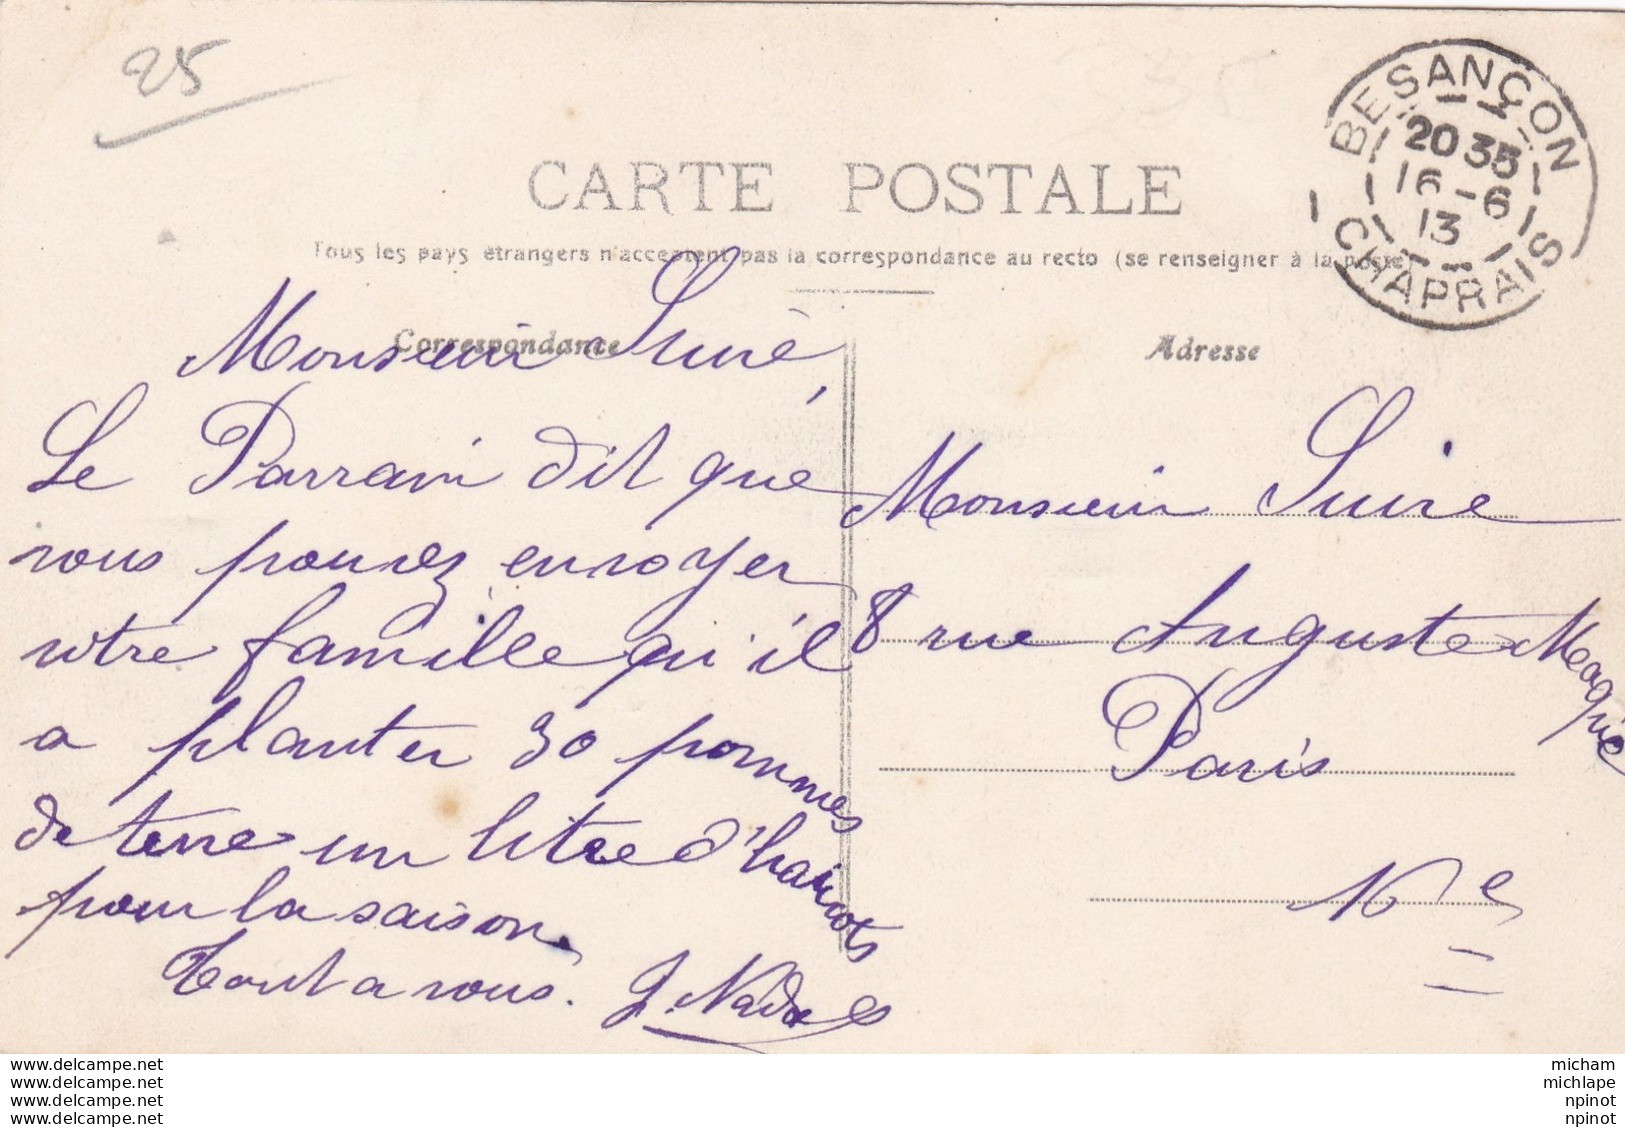 25
CARTE POSTALE
Tous les pays étrangers n'acceptent pas la correspondance au recto (se renseigner à la poste)
BESANÇON
20 35
16 - 6
13
CHAPRAIS
Correspondance
Monsieur Suire,
Le Parrain dit que
vous pouvez envoyer
votre famille qu'il
a planter 30 pommes
de terre un litre d'haricots
pour la saison.
Tout a vous. J. Nad
Adresse
Monsieur Suire
8 rue Auguste Maquet
Paris
16e
www.delcampe.net
www.delcampe.net
www.delcampe.net
www.delcampe.net
micham
michlape
npinot
npinot